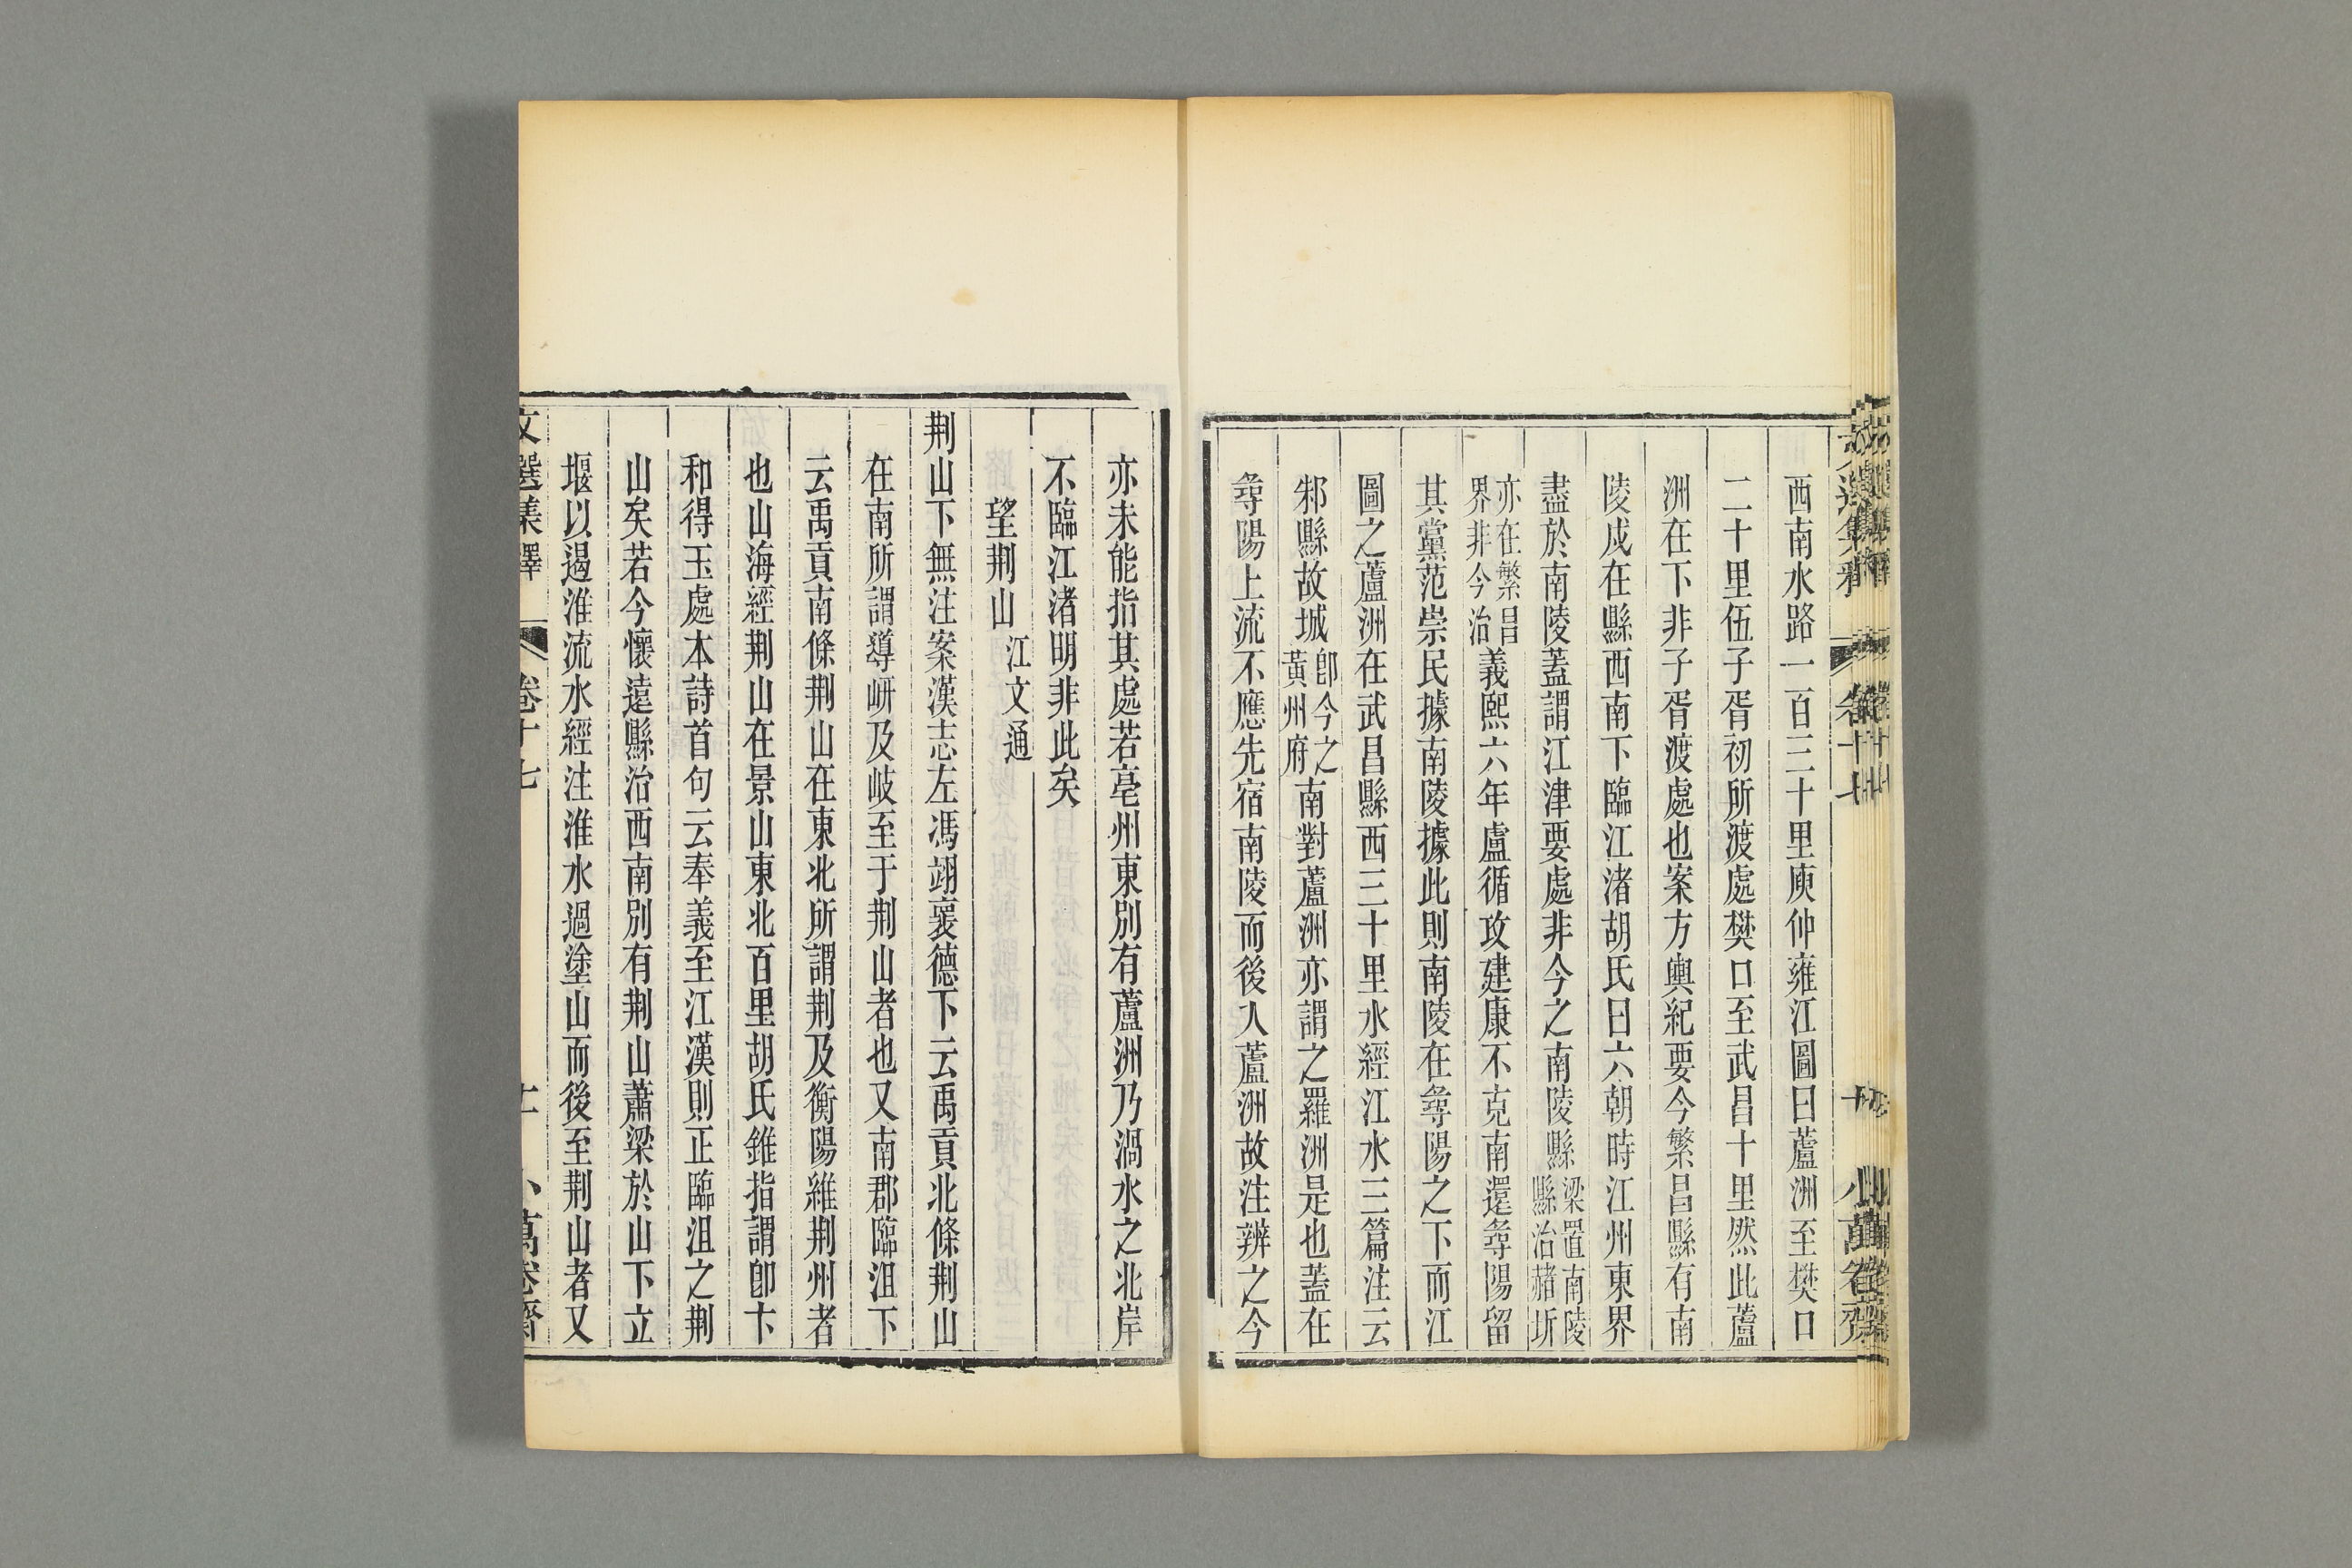 西南水路一百三十里庾仲雍江圖曰蘆洲至樊口
二十里伍子胥初所渡處樊口至武昌十里然此蘆
洲在下非子胥渡處也案方輿紀要今繁昌縣有南
陵戍在縣西南下臨江渚胡氏曰六朝時江州東界
盡於南陵蓋謂江津要處非今之南陵縣梁置南陵縣治赭圻
亦在繁昌界非今治義熙六年盧循攻建康不克南還尋陽留
其黨范崇民據南陵據此則南陵在尋陽之下而江
圖之蘆洲在武昌縣西三十里水經江水三篇注云
邾縣故城卽今之黃州府南對蘆洲亦謂之羅洲是也蓋在
尋陽上流不應先宿南陵而後入蘆洲故注辨之今
亦未能指其處若亳州東別有蘆洲乃渦水之北岸
不臨江渚明非此矣
望荆山 江文通
荆山下無注案漢志左馮翊褱德下云禹貢北條荆山
在南所謂導岍及岐至于荆山者也又南郡臨沮下
云禹貢南條荆山在東北所謂荆及衡陽維荆州者
也山海經荆山在景山東北百里胡氏錐指謂卽卞
和得玉處本詩首句云奉義至江漢則正臨沮之荆
山矣若今懷遠縣治西南別有荆山蕭梁於山下立
堰以遏淮流水經注淮水過塗山而後至荆山者又
文選集釋 卷十七